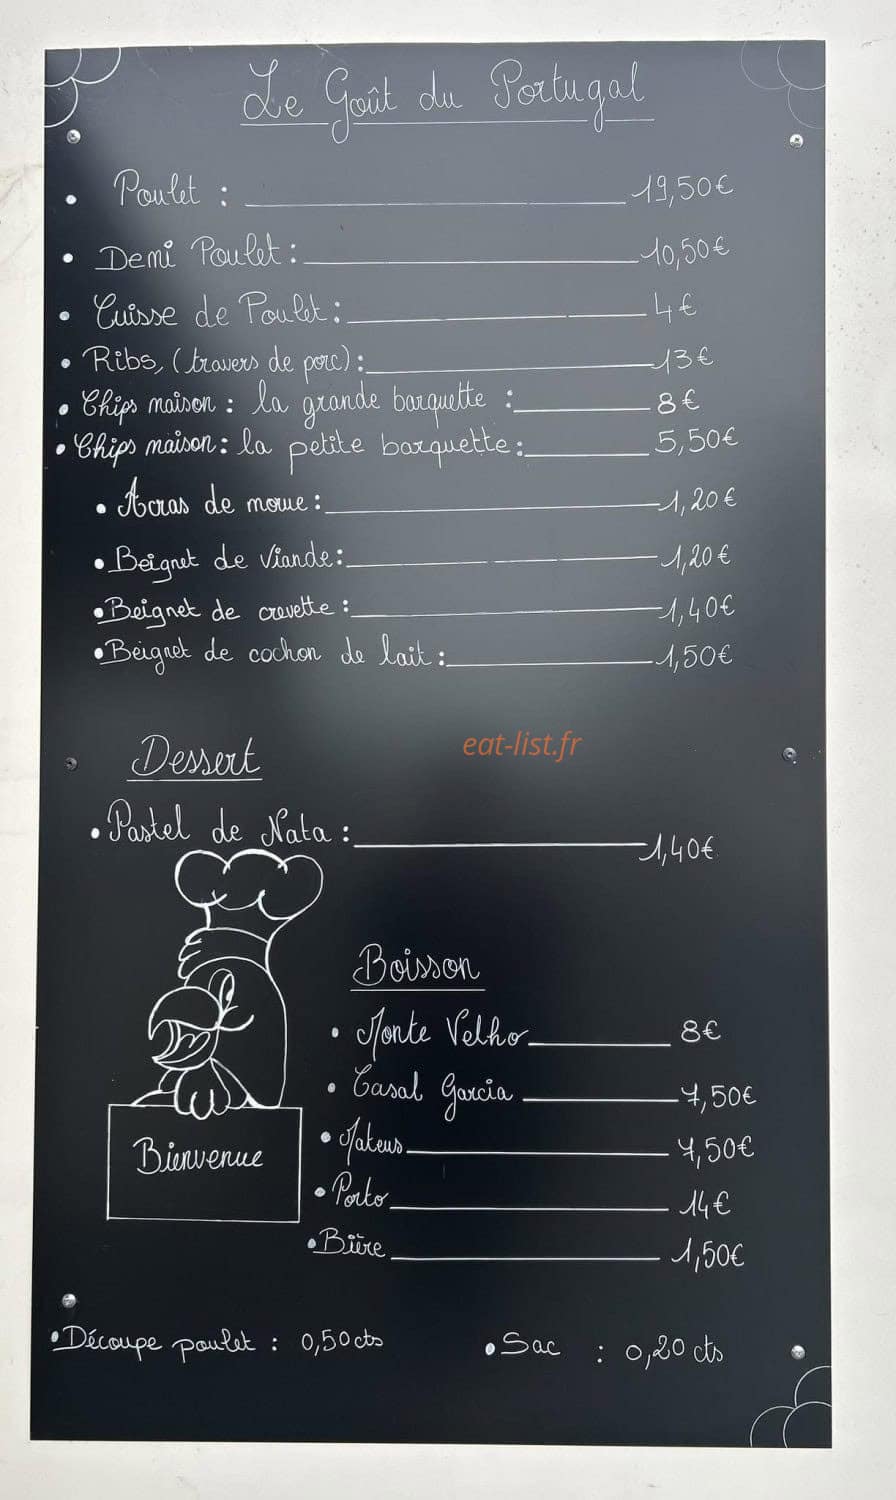 Le Goût du Portugal
• Poulet : 19,50€
• Demi Poulet : 10,50€
• Cuisse de Poulet : 4€
• Ribs, (travers de porc) : 13€
• Chips maison : la grande barquette : 8€
• Chips maison : la petite barquette : 5,50€
• Acras de morue : 1,20€
• Beignet de viande : 1,20€
• Beignet de crevette : 1,40€
• Beignet de cochon de lait : 1,50€
eat-list.fr
Dessert
• Pastel de Nata : 1,40€
Boisson
• Monte Velho 8€
• Casal Garcia 7,50€
• Mateus 7,50€
Bienvenue
• Porto 14€
• Bière 1,50€
• Découpe poulet : 0,50 cts
• Sac : 0,20 cts